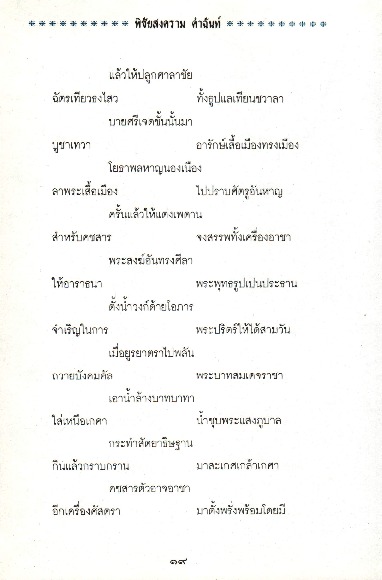 พิชัยสงคราม คำฉันท์
แล้วให้ปลูกศาลาชัย
ฉัตรเทียวธงไสว ทั้งธูปแลเทียนชวาลา
บายศรีเจดชั้นนั้นมา
บูชาเทวา อารักษ์เสื้อเมืองทรงเมือง
โยธาพลหาญนองเนือง
ลาพระเสื้อเมือง ไปปราบศัตรูอันหาญ
ครั้นแล้วให้แดงเพดาน
สำหรับคชสาร จงสรรพทั้งเครื่องอาชา
พระสงฆ์อันทรงศีลา
ให้อาราธนา พระพุทธรูปเปนประธาน
ตั้งน้ำวงก์ด้ายโอภาร
จำเริญในการ พระปริตร์ให้ได้สามวัน
เมื่อยูรยาตราไบพลัน
ถวายบังคมคัล พระบาทสมเดจราชา
เอาน้ำล้างบาทบาทา
ใส่เหนือเกศา น้ำชุบพระแสงภูบาล
กระทำสัตยาธิษฐาน
กินแล้วกราบกราน มาสะเกศเกล้าเกศา
คชสารตัวอาจอาชา
อีกเครื่องศัสตรา มาตั้งพรั่งพร้อมโดยมี
๑๙